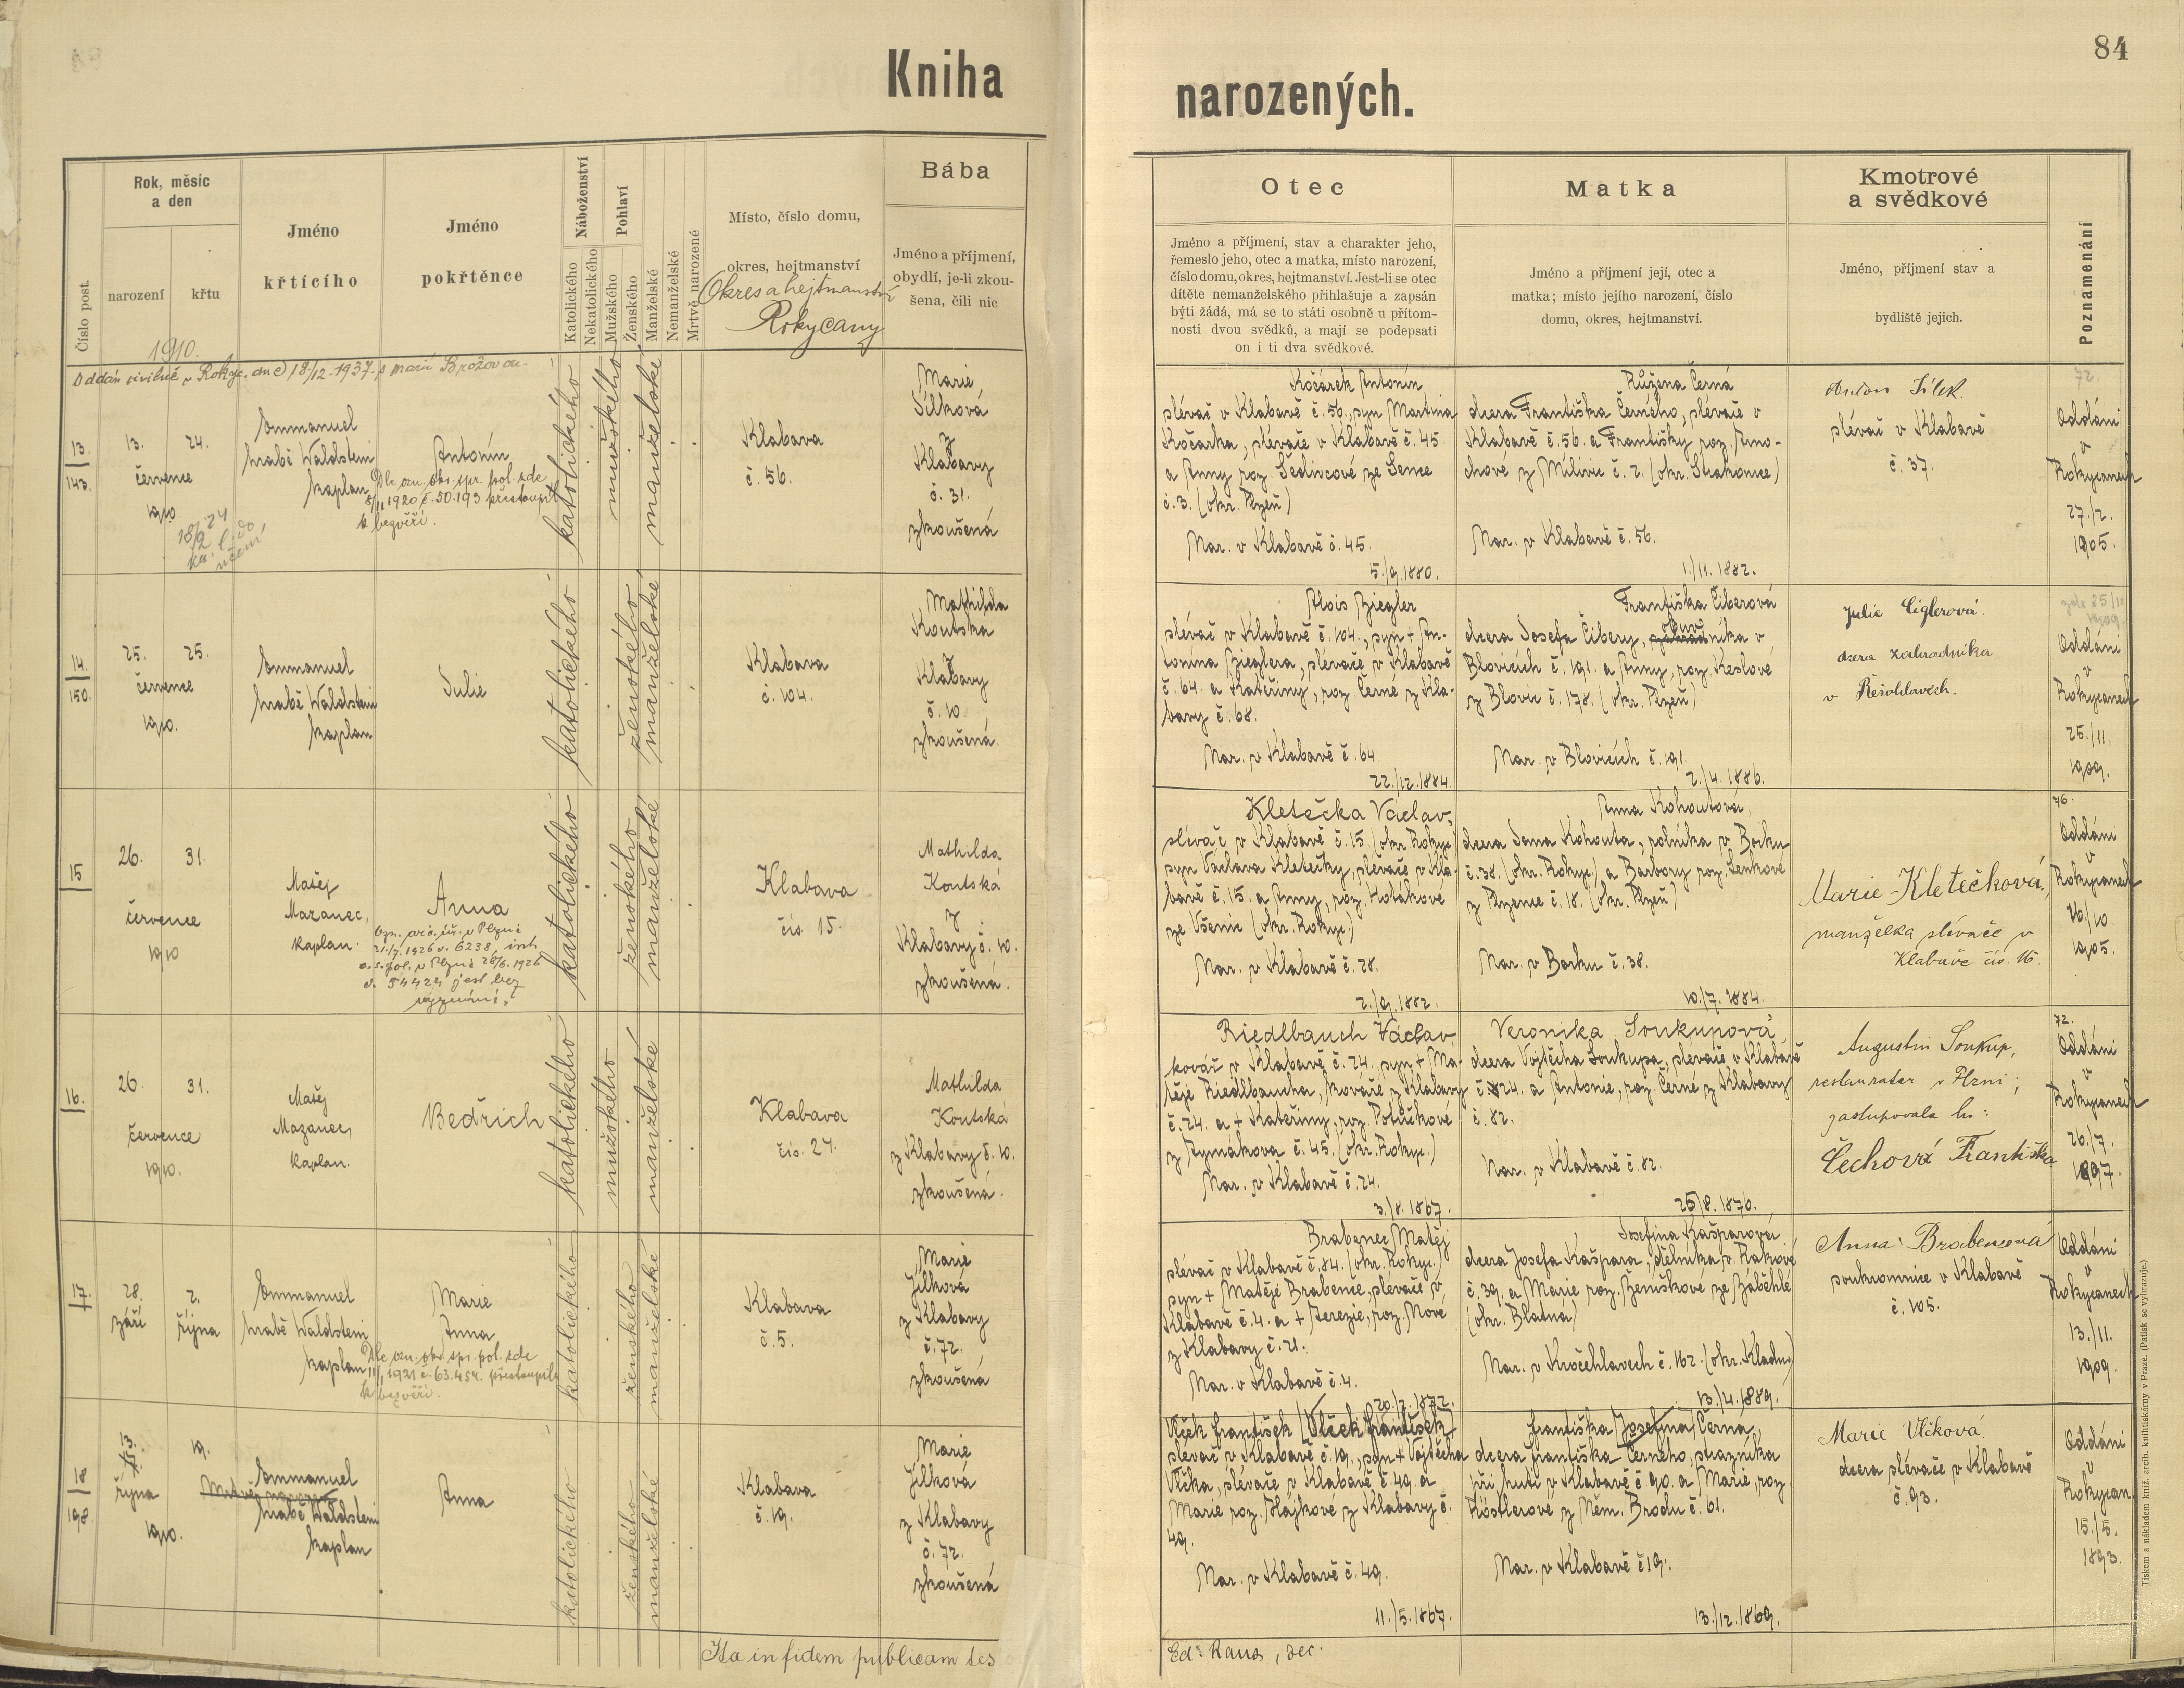 Kniha
narozených.
84
Číslo post.
Rok, měsíc
a den
narození
křtu
1910.
Jméno
křtícího
Jméno
pokřtěnce
Náboženství
Katolického
Nekatolického
Pohlaví
Mužského
Ženského
Manželské
Nemanželské
Mrtvě narozené
Místo, číslo domu,
okres, hejtmanství
Okres a hejtmanství
Rokycany
Bába
Jméno a příjmení,
obydlí, je-li zkou-
šena, čili nic
Otec
Jméno a příjmení, stav a charakter jeho,
řemeslo jeho, otec a matka, místo narození,
číslo domu, okres, hejtmanství. Jest-li se otec
dítěte nemanželského přihlašuje a zapsán
býti žádá, má se to státi osobně u přítom-
nosti dvou svědků, a mají se podepsati
on i ti dva svědkové.
Matka
Jméno a příjmení její, otec a
matka; místo jejího narození, číslo
domu, okres, hejtmanství.
Kmotrové
a svědkové
Jméno, příjmení stav a
bydliště jejich.
Poznamenání
Oddán civilně v Rokyc. dne 18/12. 1937. s Marií Brožovou.
13.
143.
13.
24.
července
1910
18/2 24
Emmanuel
hrabě Waldstein
kaplan
Antonín
Dle ozn. okr. spr. pol. zde
8/11 1920 č. 50.193 přestoupil
k bezvěří.
katolického
mužského
manželské
Klabava
č. 56.
Marie
Jílková
z
Klabavy
č. 31.
zkoušená
Kočárek Antonín
slévač v Klabavě č. 56., syn Martina
Kočárka, slévače v Klabavě č. 45.
a Anny roz. Šedivcové ze Sence
č. 3. (okr. Plzeň)
Nar. v Klabavě č. 45.
5./9. 1880.
Růžena Černá
dcera Františka Černého, slévače v
Klabavě č. 56. a Františky roz. Arno-
chové z Milivic č. 2. (okr. Strakonice)
Nar. v Klabavě č. 56.
1./11. 1882.
Anton Jílek.
slévač v Klabavě
č. 37.
72.
Oddáni
v
Rokycanech
27./2.
1905.
14.
150.
25.
25.
července
1910.
Emmanuel
hrabě Waldstein
kaplan
Julie
katolického
ženského
manželské
Klabava
č. 104.
Mathilda
Koutska
z
Klabavy
č. 10.
zkoušená.
Alois Ziegler
slévač v Klabavě č. 104., syn + An-
tonína Zieglera, slévače v Klabavě
č. 64. a Kateřiny, roz. Černé z Kla-
bavy č. 68.
Nar. v Klabavě č. 64.
22./12. 1884.
Františka Čiberová
dcera Josefa Čibery, obuvníka v
Blovicích č. 191. a Anny, roz. Keslové
z Blovic č. 178. (okr. Plzeň)
Nar. v Blovicích č. 191.
2./4. 1886.
Julie Ciglerová.
dcera zahradníka
v Řešohlavech.
zde 25/11
1909
Oddáni
v
Rokycanech
25./11.
1909.
15
26.
31.
července
1910
Matěj
Mazanec,
kaplan.
Anna
katolického
ženského
manželské
Klabava
čís. 15.
Mathilda
Koutská
z
Klabavy č. 10.
zkoušená.
Kletečka Václav,
slévač v Klabavě č. 15. (okr. Rokyc.)
syn Václava Kletečky, slévače v Kla-
bavě č. 15. a Anny, roz. Kolákové
ze Všenic (okr. Rokyc.)
Nar. v Klabavě č. 28.
2./9. 1882.
Anna Kohoutová,
dcera Jana Kohouta, rolníka v Borku
č. 38. (okr. Rokyc.) a Barbory roz. Lenkové
z Plzence č. 18. (okr. Plzeň)
Nar. v Borku č. 38.
10./7. 1884.
Marie Kletečková,
manželka slévače v
Klabavě čís. 15.
76.
Oddáni
v
Rokycanech
16./10.
1905.
16.
26.
31.
července
1910.
Matěj
Mazanec,
kaplan.
Bedřich
katolického
mužského
manželské
Klabava
čís. 24.
Mathilda
Koutská
z Klabavy č. 10.
zkoušená.
Riedlbauch Václav
kovář v Klabavě č. 24. syn + Ma-
těje Riedlbaucha, kováře z Klabavy
č. 24. a + Kateřiny, roz. Potůčkové
z Rymákova č. 45. (okr. Rokyc.)
Nar. v Klabavě č. 24.
3./8. 1867.
Veronika Soukupová,
dcera Vojtěcha Soukupa, slévače v Klabavě
č. 24. a Antonie, roz. Černé z Klabavy
č. 82.
Nar. v Klabavě č. 82.
25./8. 1870.
Augustin Soukup,
restauratér v Plzni;
zastupovala ho:
Čechová Františka
72.
Oddáni
v
Rokycanech
26./7.
1897.
17.
28.
září
2.
října
Emmanuel
hrabě Waldstein
kaplan
Marie
Anna
Dle ozn. okr. spr. pol. zde
11/1 1921 č. 63.454. přestoupila
k bezvěří.
katolického
ženského
manželské
Klabava
č. 5.
Marie
Jílková
z Klabavy
č. 72.
zkoušená
Brabenec Matěj
slévač v Klabavě č. 84. (okr. Rokyc.)
syn + Matěje Brabence, slévače v
Klabavě č. 4. a + Terezie, roz. Nové
z Klabavy č. 21.
Nar. v Klabavě č. 4.
20./2. 1872.
Josefina Kašparová
dcera Josefa Kašpara, dělníka v Rakové
č. 39. a Marie roz. Beníškové ze Záběhlé
(okr. Blatná)
Nar. v Kročehlavech č. 162. (okr. Kladno)
13./4. 1889.
Anna Brabencová
soukromnice v Klabavě
č. 105.
Oddáni
v
Rokycanech
13./11.
1909.
18
198.
13.
října
1910.
19.
Emmanuel
hrabě Waldstein
kaplan
Anna
katolického
ženského
manželské
Klabava
č. 19.
Marie
Jílková
z Klabavy
č. 72.
zkoušená
Vlček František (Vlček František)
slévač v Klabavě č. 19., syn + Vojtěcha
Vlčka, slévače v Klabavě č. 49. a
Marie roz. Hájkové z Klabavy č.
49.
Nar. v Klabavě č. 49.
11./5. 1867.
Františka (Josefina) Černá,
dcera Františka Černého, strážníka
při huti v Klabavě č. 90. a Marie, roz.
Köstlerové z Něm. Brodu č. 61.
Nar. v Klabavě č. 19.
13./12. 1869.
Marie Vlčková
dcera slévače v Klabavě
č. 93.
Oddáni
v
Rokycan.
15./5.
1893.
Ita in fidem publicam tes
Tiskem a nákladem kníž. arcib. knihtiskárny v Praze. (Patisk se vyhrazuje.)